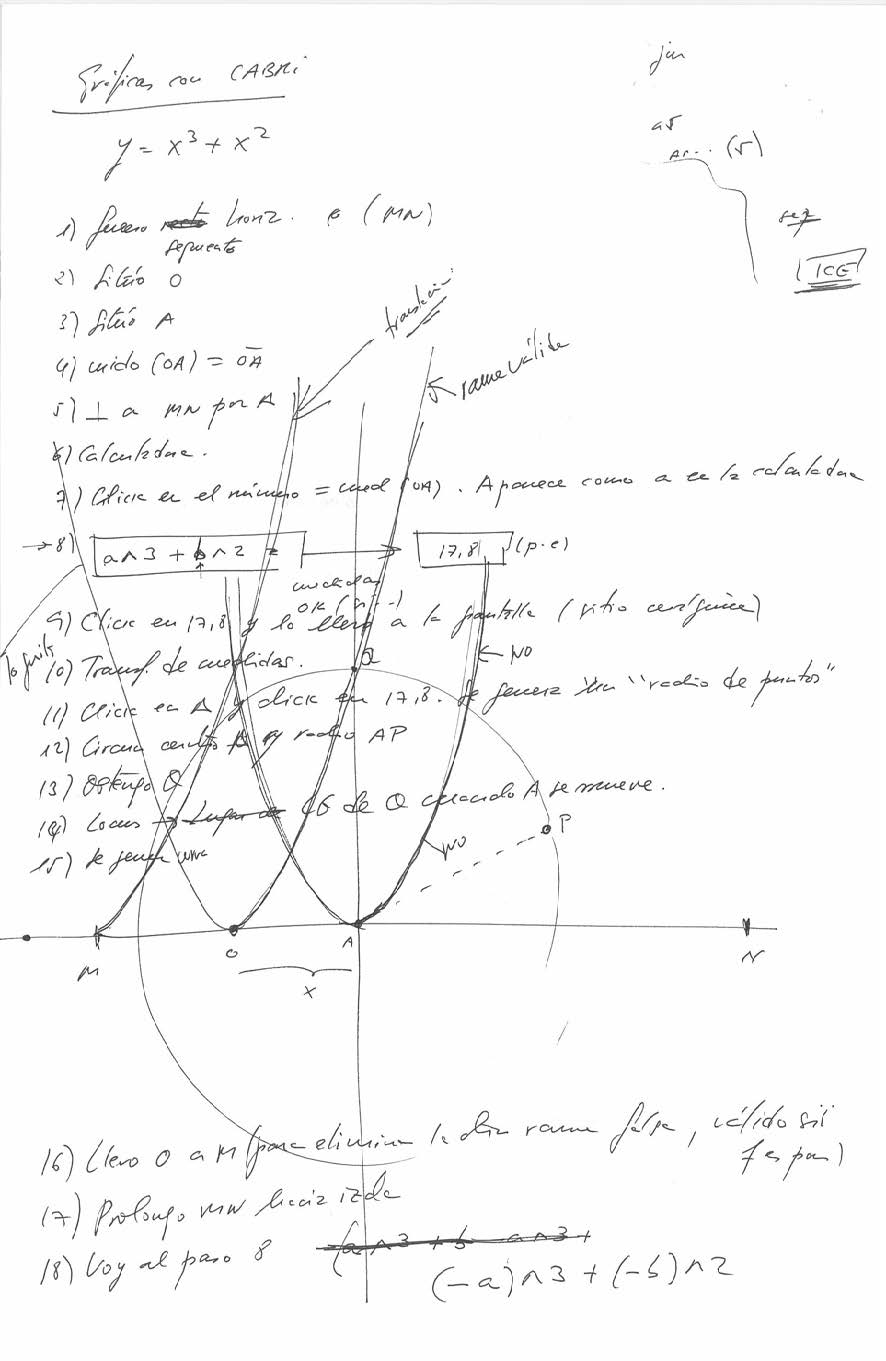 Gráficas con CABRI
y = x³ + x²
1) Genero recta horiz. e (MN)
segmento
2) Sitúo O
3) Sitúo A
4) mido (OA) = OA
5) ⊥ a MN por A
6) Calculadora.
7) Click en el número = med (OA). Aparece como a en la calculadora
→ 8) a∧3 + b∧2 = → 17,8 (p.e)
medidas
OK
9) Click en 17,8 y lo llevo a la pantalla (sitio cualquiera)
10) Transf. de medidas.
11) Click en A y click en 17,8. Se genera un "radio de puntos"
12) Circun centro A y radio AP
13) Obtengo Q
14) Locus → Lugar de LG de Q cuando A se mueve.
15) Se genera una
rama válida
NO
NO
Q
P
M
O
A
N
x
16) Llevo O a M (para eliminar la otra rama falsa, válido sii
f es par)
17) Prolongo MN hacia izda
18) Voy al paso 8
(-a)∧3 + (-b)∧2
jun
(5)
sep
ICE